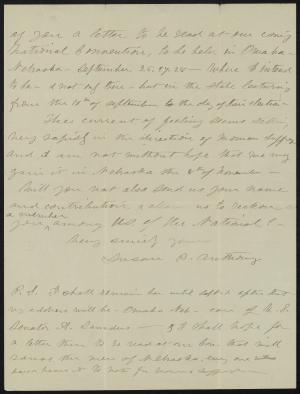 of you a letter to be read at our coming
National Convention, to be held in Omaha -
Nebraska - September 26. 27. 28 - Where I intend
to be - & not only there - but in the state lecturing
from the 10th of September to the day of their election -
The current of feeling seems setting
very rapidly in the direction of woman suffrage
and I am not without hope that we may
gain it in Nebraska the 7th of November -
Will you not also send us your name
and contribution & allow us to reckon
you a member among us of the National? -
Very sincerely yours
Susan B. Anthony
P.S. I shall remain here until after that
my address will be - Omaha Neb - care of U.S.
Senator A. Saunders - & I shall hope for
a letter there to be read at our Con. that will
rouse the men of Nebraska, every one
to vote for woman suffrage -